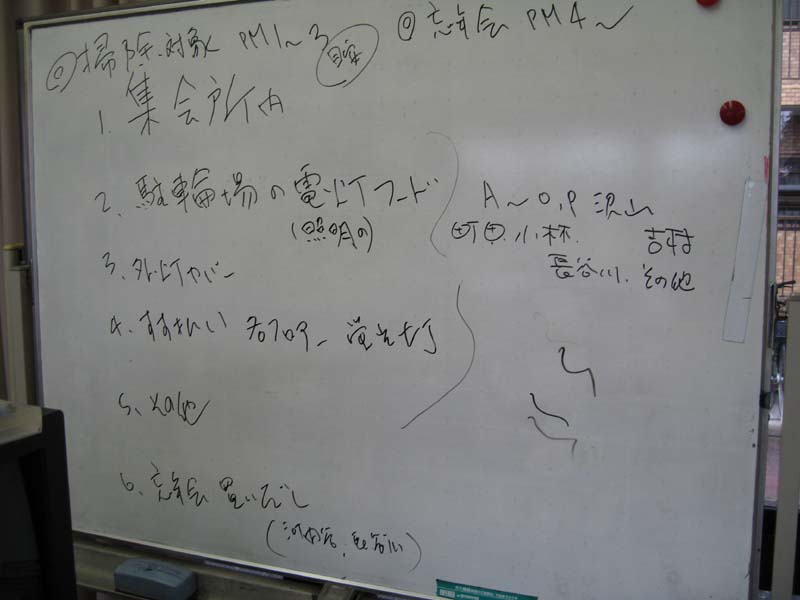 ◎掃除対象 PM1〜3
◎忘年会 PM4〜
1. 集会所内
2、駐輪場の電灯フード
(照明の)
3、外灯カバー
4、すすはらい 各フロアー 蛍光灯
5、その他
6、忘年会 買いだし
(河内谷、長谷川)
A〜O,P 沢山
町田、小林、 吉村
長谷川、その他